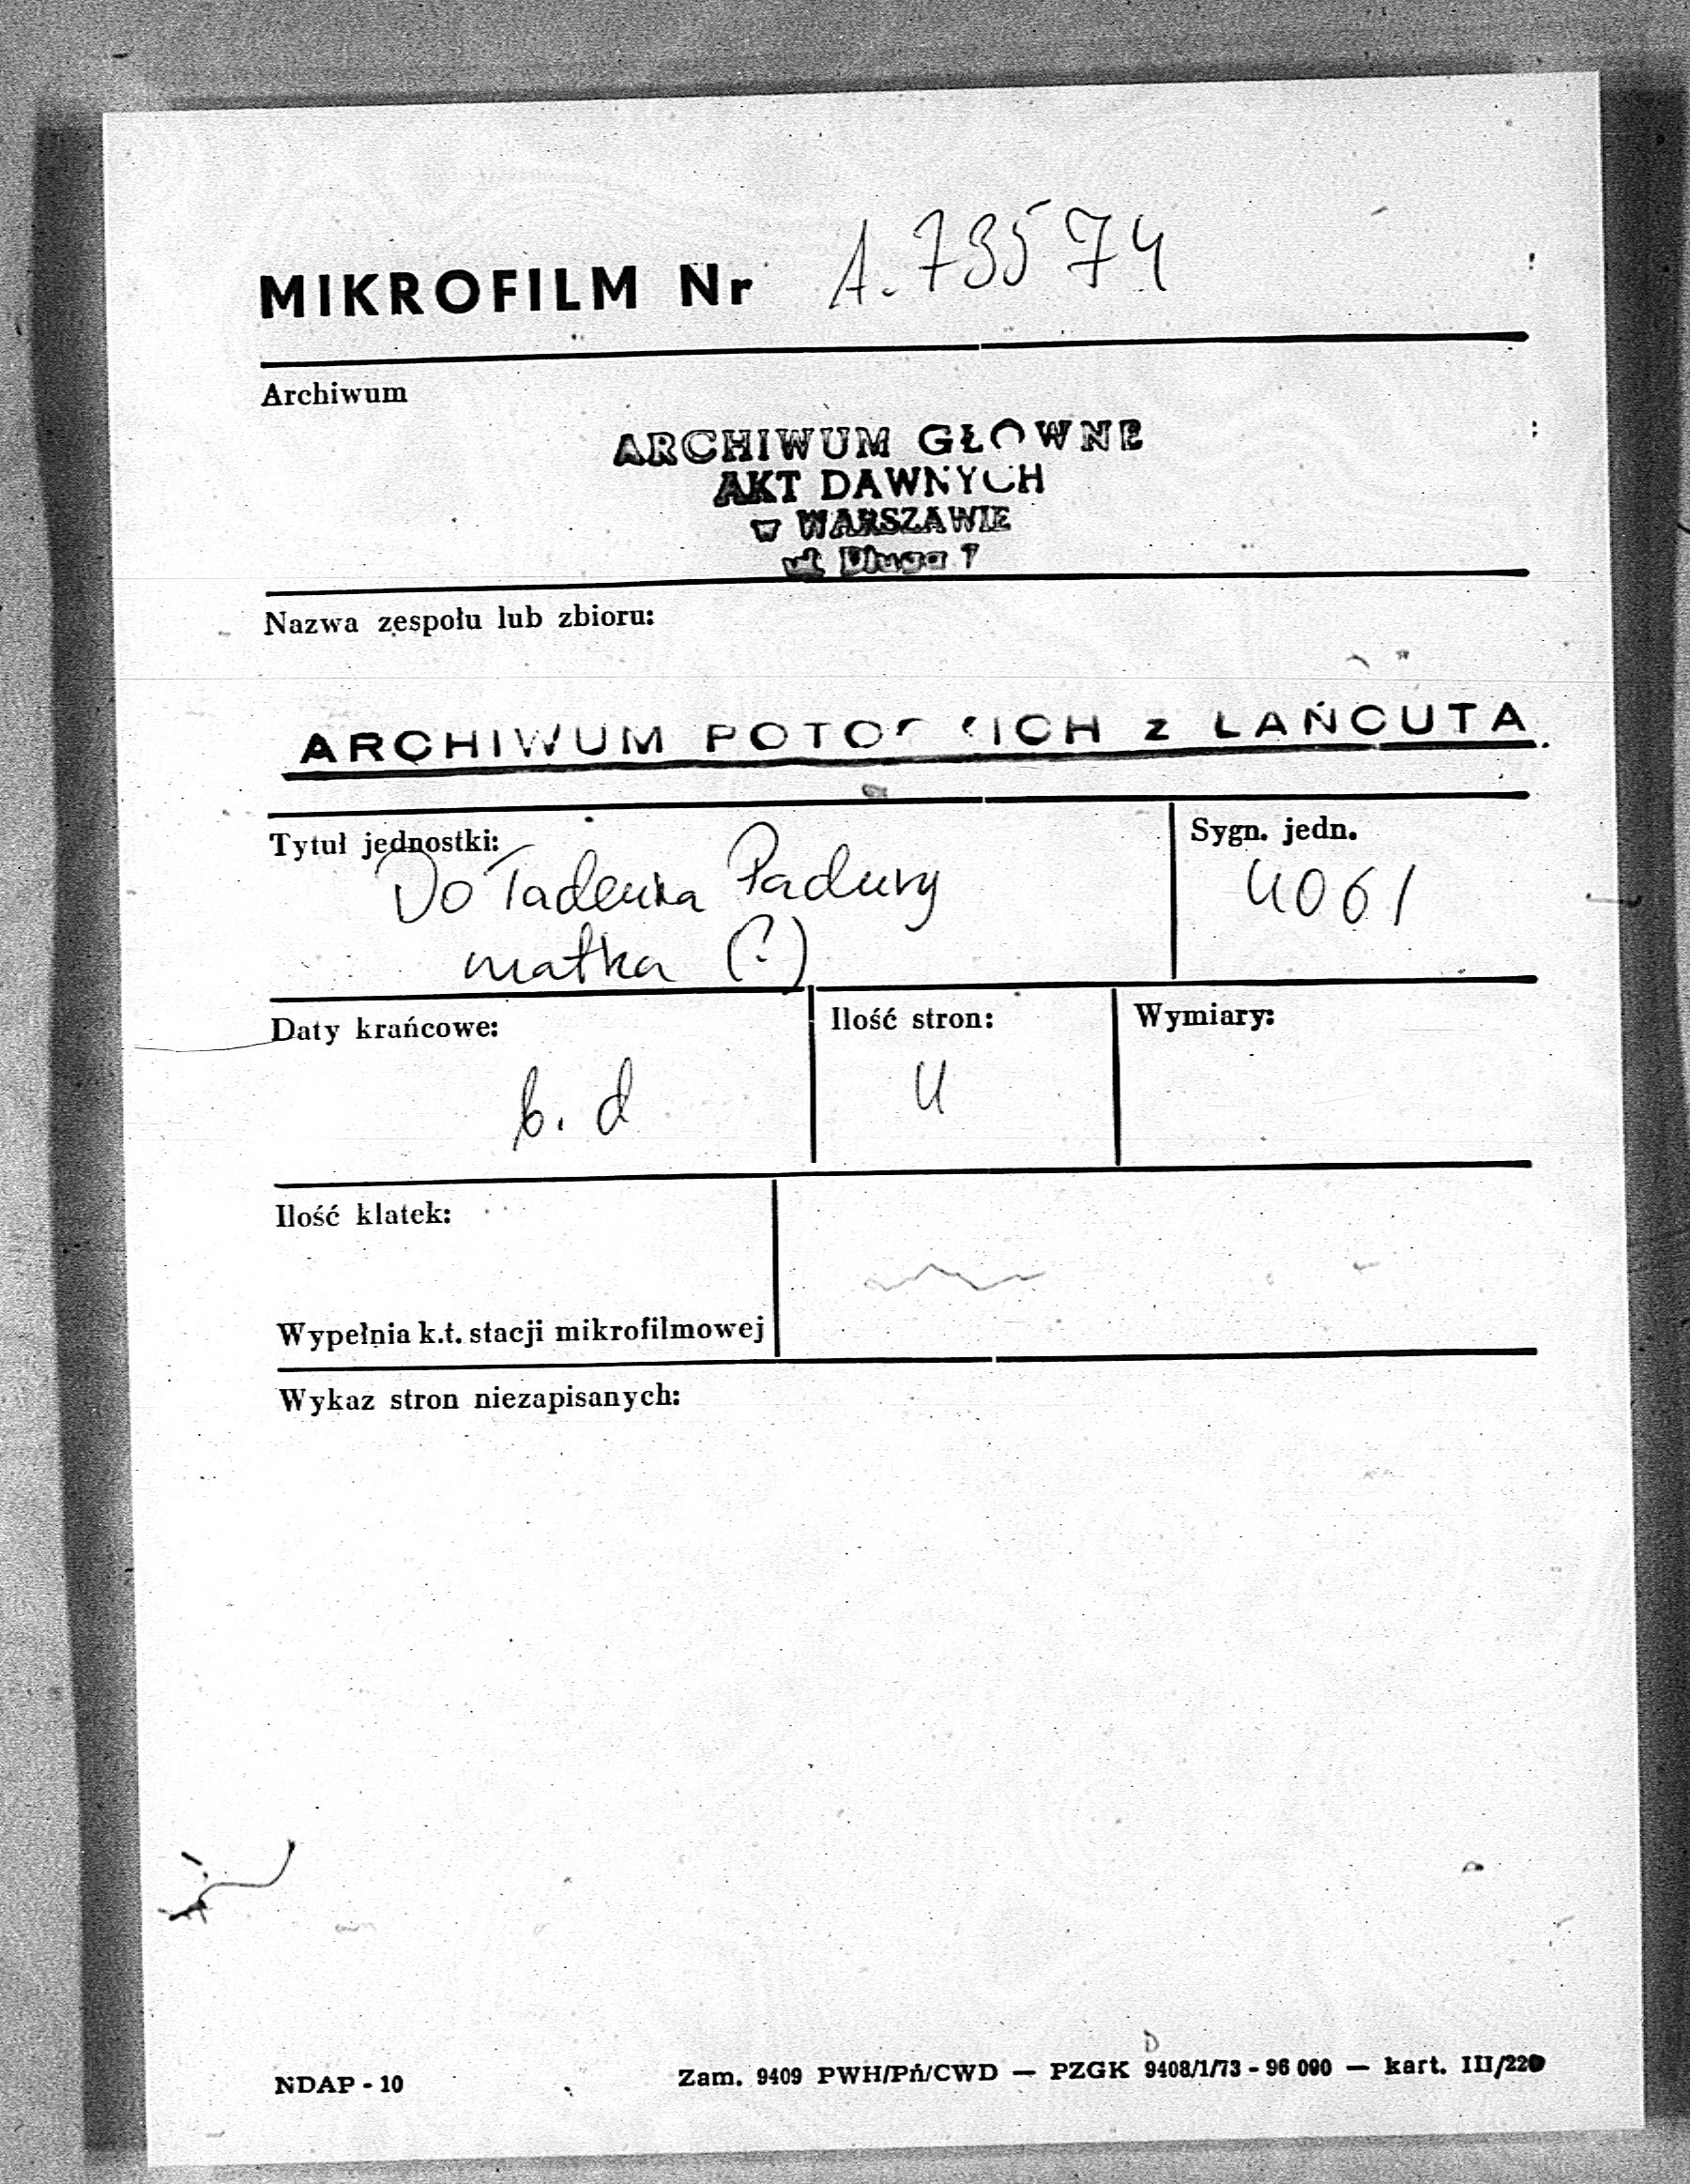 MIKROFILM Nr A. 73574
Archiwum
ARCHIWUM GŁÓWNE
AKT DAWNYCH
w WARSZAWIE
ul. Długa 7
Nazwa zespołu lub zbioru:
ARCHIWUM POTOCKICH z ŁAŃCUTA
Tytuł jednostki:
Sygn. jedn.
Do Tadeusza Padury
matka (?)
4061
Daty krańcowe:
Ilość stron:
Wymiary:
b. d
4
Ilość klatek:
Wypełnia k.t. stacji mikrofilmowej
Wykaz stron niezapisanych:
NDAP - 10
Zam. 9409 PWH/Pń/CWD — PZGK 9408/1/73 - 96 000 — kart. III/220